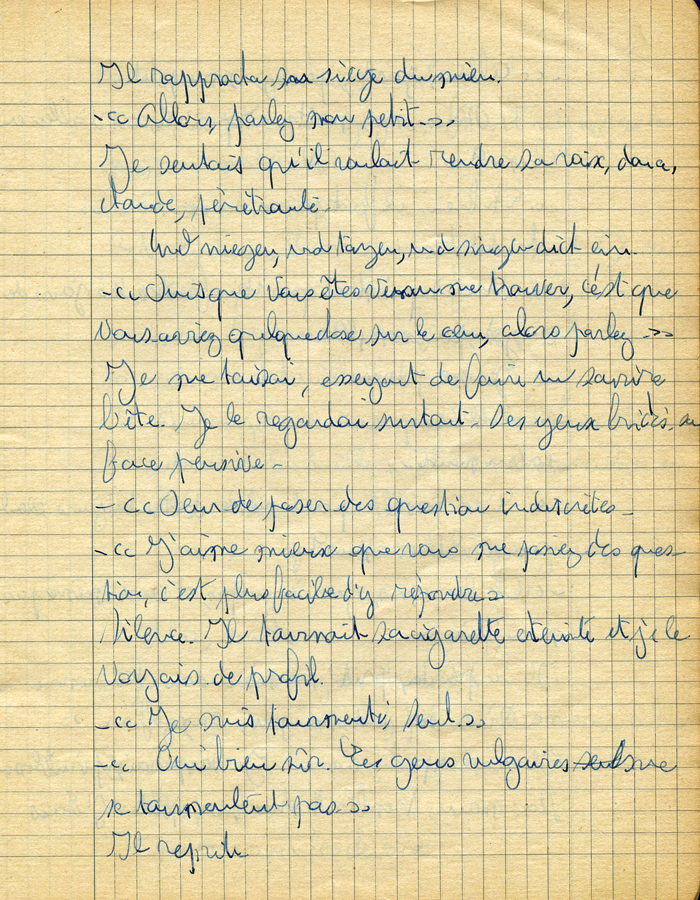 Il rapprocha son siège du mien.
- << Allons, parlez mon petit - >>
Je sentais qu'il voulait rendre sa voix, douce,
chaude, pénétrante.
und tanzen, und singen dich ein.
- << Puisque vous êtes venu me trouver, c'est que
vous aviez quelque chose sur le cœur, alors parlez - >>
Je me taisai, essayant de faire un sourire
bête. Je le regardai surtout - Ses yeux bridés, sa
face pensive -
- << Peur de poser des question indiscrètes -
- << J'aime mieux que vous me posiez des ques-
tion, c'est plus facile d'y répondre >>
Silence. Il tournait sa cigarette éteinte et je le
voyais de profil.
- << Je suis tourmenté, seul. >>
- << Oui bien sûr. Les gens vulgaires seuls ne
se tourmentent pas >>
Il reprit